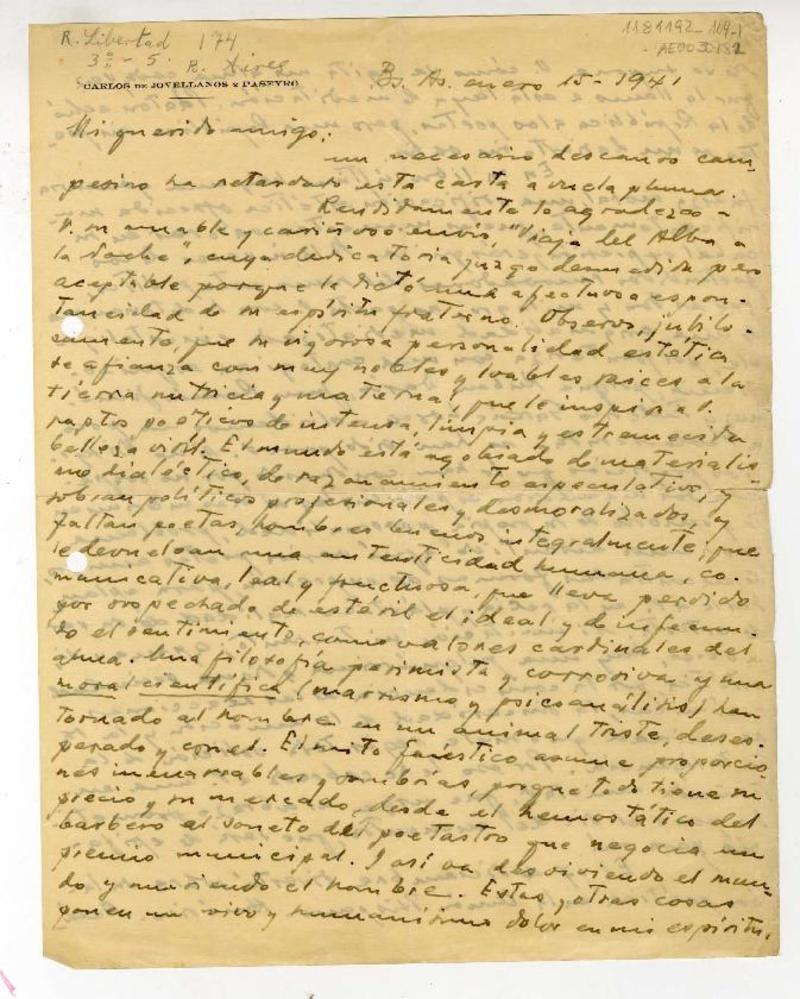 R. Libertad 174
3º - 5. B. Aires
1181192-164-1
AE0030182
CARLOS DE JOVELLANOS Y PASEYRO
Bs. As. enero 15-1941
Mi querido amigo:
un necesario descanso cam-
pesino ha retardado esta carta a vuela pluma.
Rendidamente le agradezco a
V. su amable y cariñoso envío, "Viaje del Alba a
la Noche", cuya dedicatoria juzgo desmedida pero
aceptable porque la dictó una afectuosa espon-
taneidad de su espíritu fraterno. Observo, jubilo-
samente, que su vigorosa personalidad estética
se afianza con muy nobles y loables raíces a la
tierra nutricia y materna, que le inspira a V.
raptos poéticos de intensa, limpia y estremecida
belleza viril. El mundo está agobiado de materialis-
mo dialéctico, de razonamiento especulativo, y
sobran políticos profesionales y desmoralizados, y
faltan poetas, hombres buenos integralmente, que
le devuelvan una autenticidad humana, co-
municativa, leal y fructuosa, que lleva perdido
por sospechado de estéril el ideal y de infecun-
do el sentimiento, como valores cardinales del
alma. Una filosofía pesimista y corrosiva y una
moral científica (marxismo y psicoanálisis) han
tornado al hombre en un animal triste, deses-
perado y cruel. El mito fáustico asume proporcio-
nes inenarrables y sombrías, porque todo tiene su
precio y su mercado, desde el hemostático del
barbero al soneto del poetastro que negocia un
premio municipal. I así va desviviendo el mun-
do y muriendo el hombre. Estas y otras cosas
ponen un vivo y humanísimo dolor en mi espíritu,